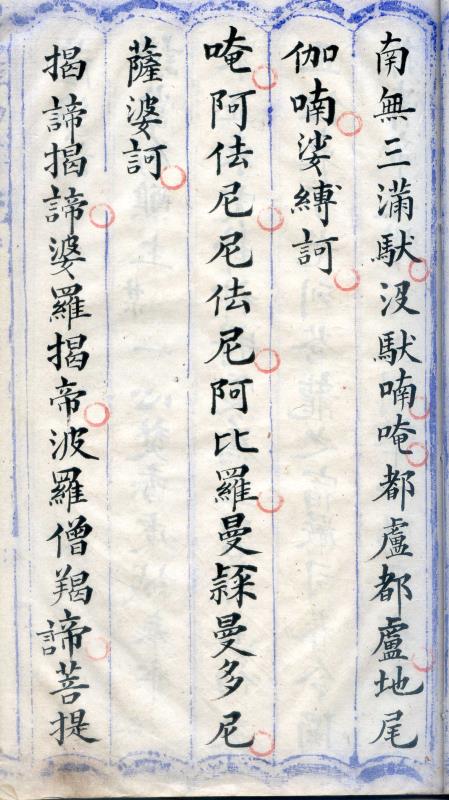 南無三滿馱沒馱喃唵都盧都盧地尾
伽喃娑縛訶
唵阿佉尼尼佉尼阿比羅曼隸曼多尼
薩婆訶
揭諦揭諦婆羅揭帝波羅僧羯諦菩提